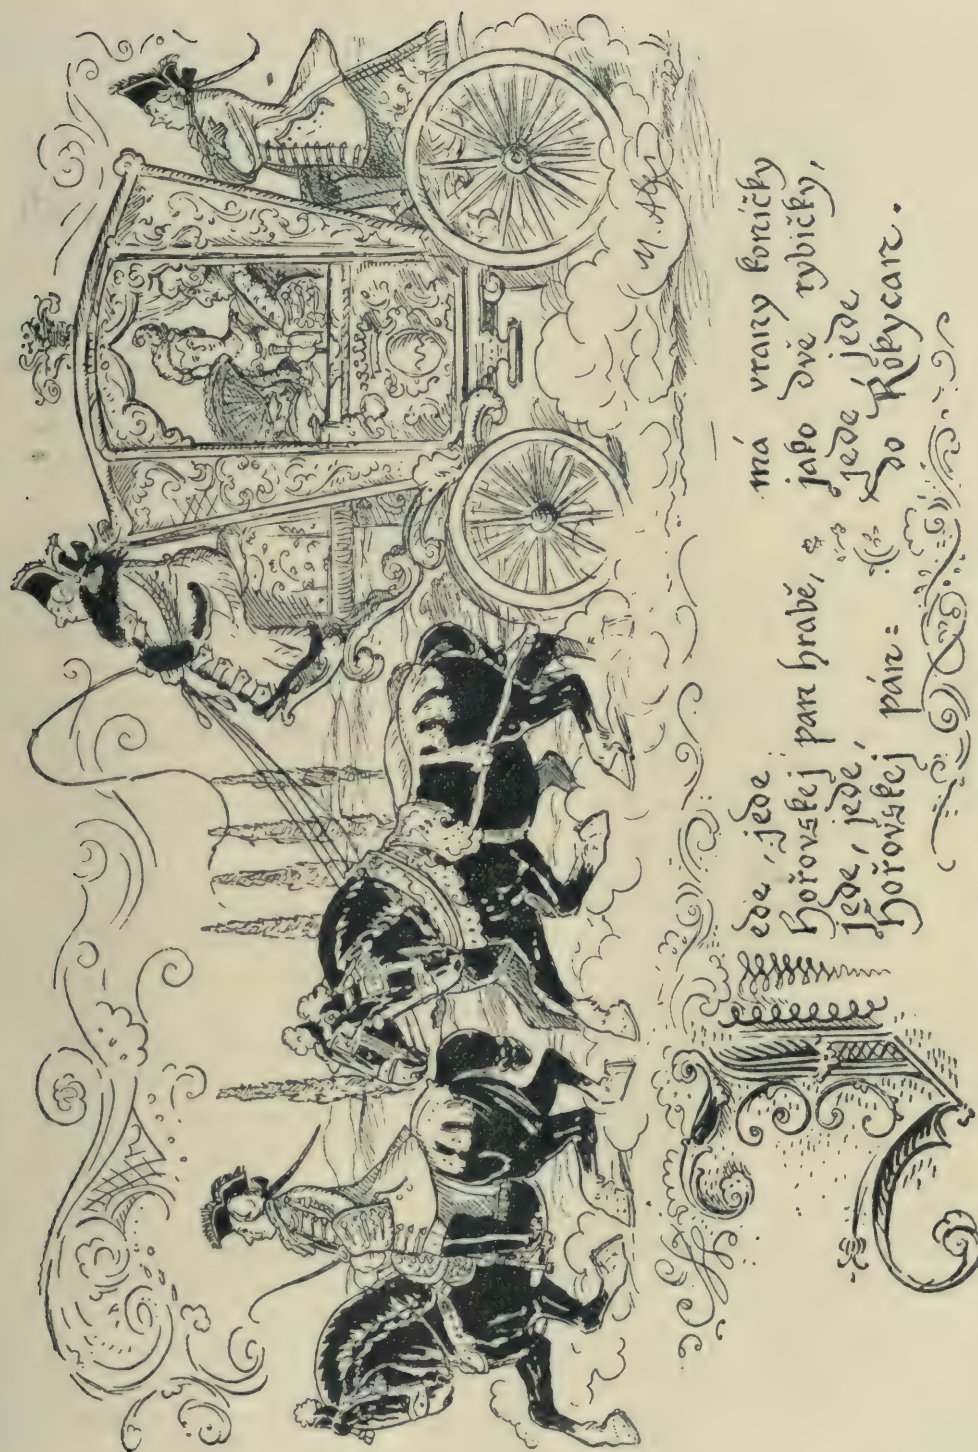 M. Aleš
Jede, jede
hořovskej pan hrabě,
jede, jede,
hořovskej pán:
má vrany koničky
jako dvě rybičky,
jede, jede
do Rokycan.